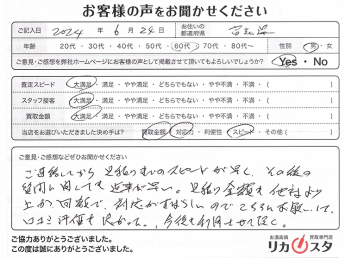 お客様の声をお聞かせください
ご記入日 2024年 6月 24日 お住いの都道府県
年齢 20代・30代・40代・50代・60代・70代・80代〜 性別 男・女
ご意見・ご感想を弊社ホームページにお客様の声として掲載させて頂いてもよろしいでしょうか? Yes・No
査定スピード 大満足・満足・やや満足・どちらでもない・やや不満・不満・( )
スタッフ接客 大満足・満足・やや満足・どちらでもない・やや不満・不満・( )
買取金額 大満足・満足・やや満足・どちらでもない・やや不満・不満・( )
当店をお選びいただきました決め手は? 買取金額・対応力・利便性・スピード・その他( )
ご意見・ご感想などぜひお聞かせください
ご連絡してから 見積りまでのスピードが早く、その後の
質問に関しても 返事が早い。見積り金額も他社より
上が、回答で、対応がすばらしいのでこちらにお願いして、
口コミ評価も良かった。今後も利用させて頂く。
ご協力ありがとうございました。
この度は誠にありがとうございました。
お酒高価買取専門店
リカスタ